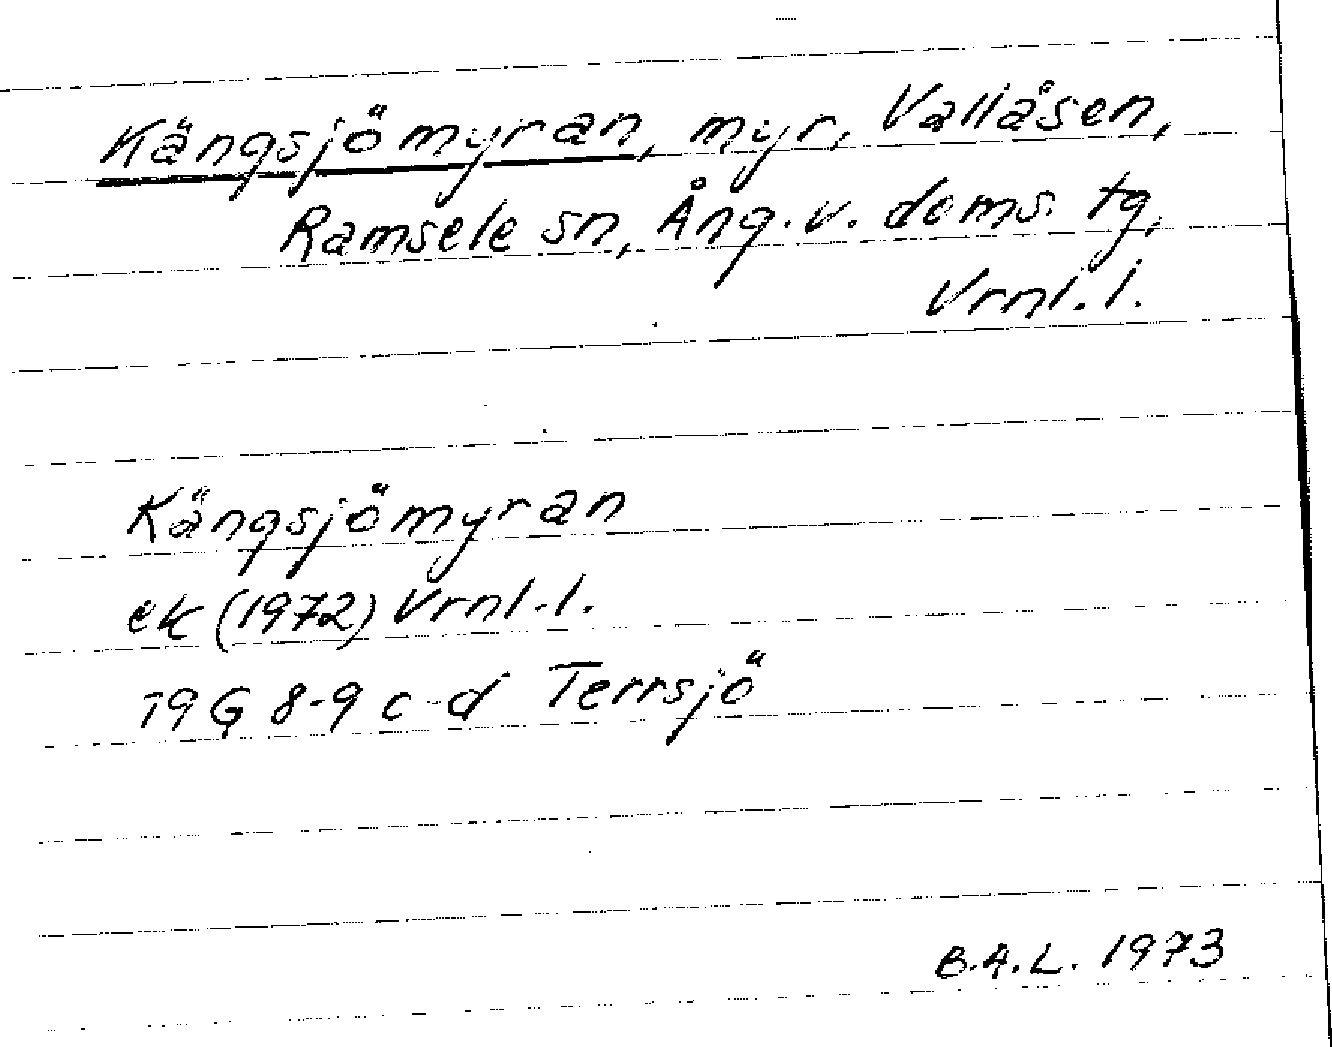 Kängsjömyran, myr, Vallåsen,
Ramsele sn, Ång. v. doms. tg,
Vrnl. l.
Kängsjömyran
ek (1972) Vrnl. l.
19 G 8-9 c-d Terrsjö
B.A.L. 1973